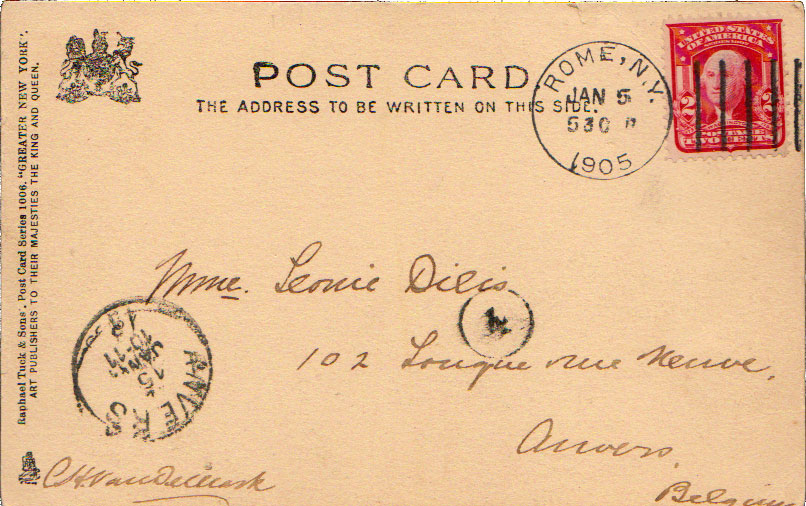 POST CARD
THE ADDRESS TO BE WRITTEN ON THIS SIDE.
ROME, N.Y.
JAN 5
530 P
1905
UNITED STATES
OF AMERICA
2 2
POSTAGE
TWO CENTS
Raphael Tuck & Sons'. Post Card Series 1006. "GREATER NEW YORK".
ART PUBLISHERS TO THEIR MAJESTIES THE KING AND QUEEN.
Mme. Leonie Dilis
4
102 Longue rue Neuve,
Anvers
Belgium
ANVERS
10-11
JANV
C.H. Van Dellmark